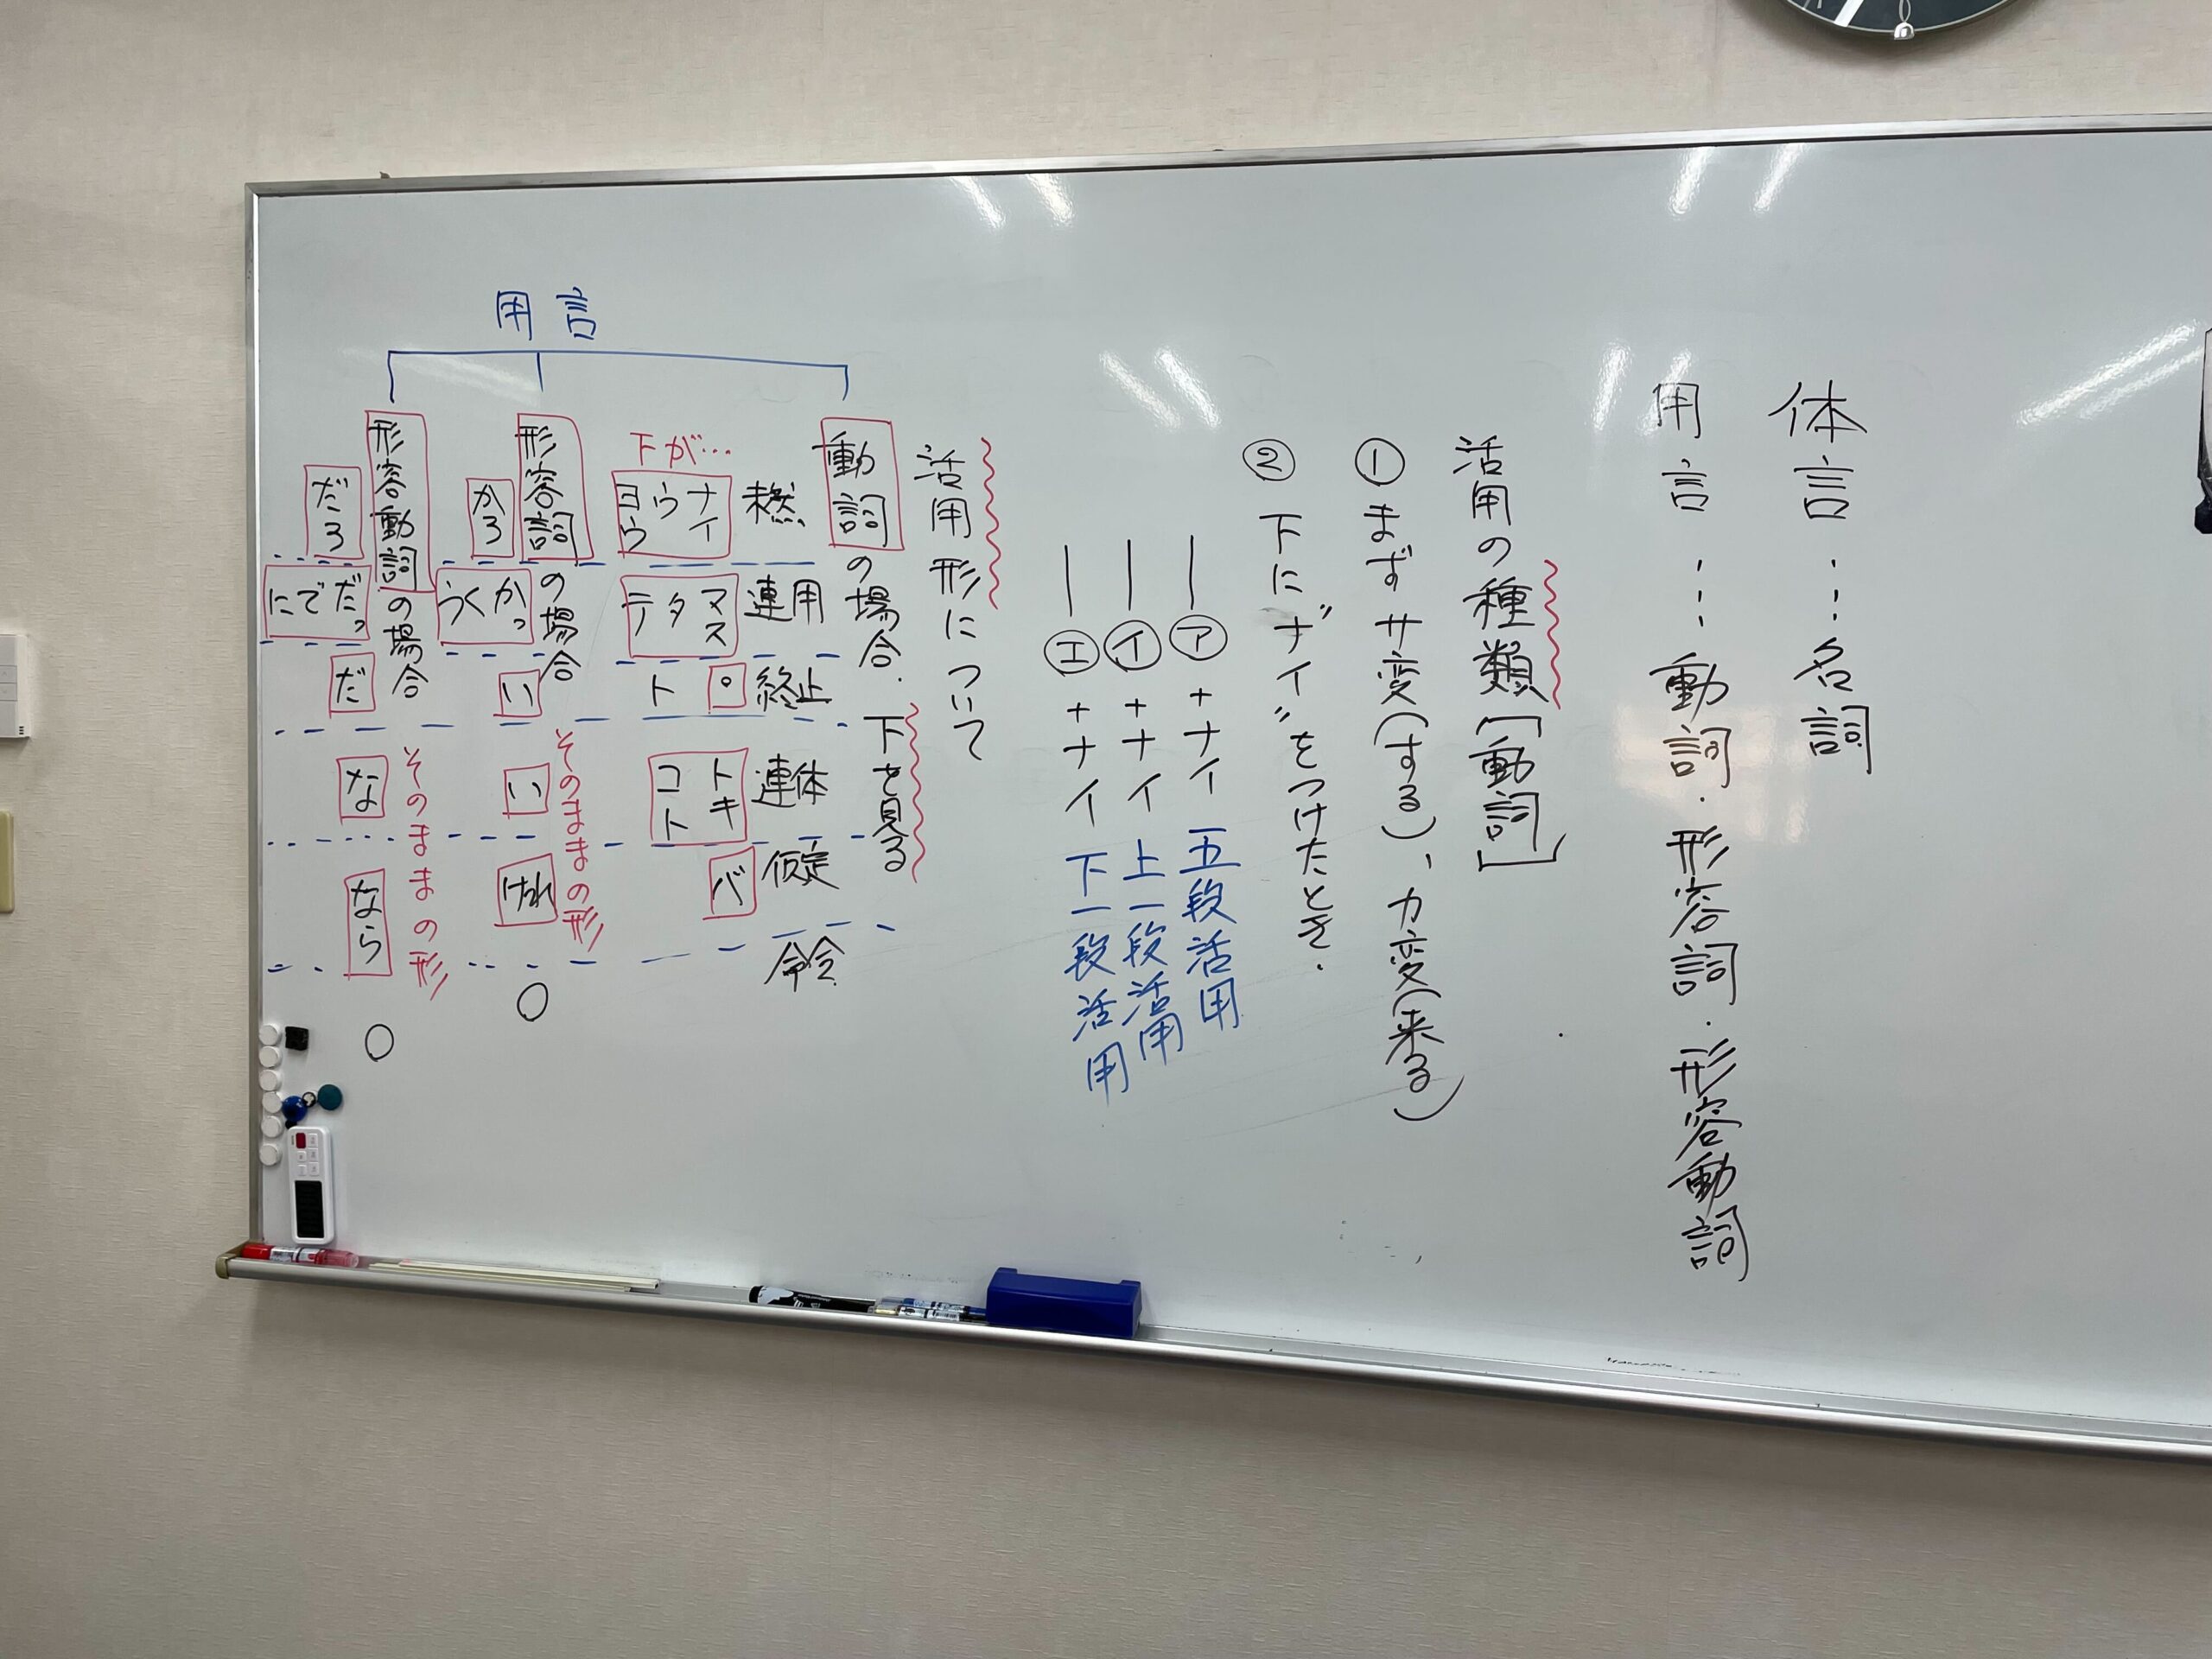 体言……名詞
用言……動詞・形容詞・形容動詞
活用の種類［動詞］
①まずサ変（する）、カ変（来る）
②下に〝ナイ〟をつけたとき.
―㋐+ナイ 五段活用
―㋑+ナイ 上一段活用
―㋓+ナイ 下一段活用
活用形について
用言
動詞の場合.下を見る
未然 連用 終止 連体 仮定 命令
下が…
ナイ マス 。 トキ バ
ウ タ ト コト
ヨウ テ
形容詞の場合 そのままの形
かろ かっ く う い い けれ ○
形容動詞の場合 そのままの形
だろ だっ で に だ な なら ○